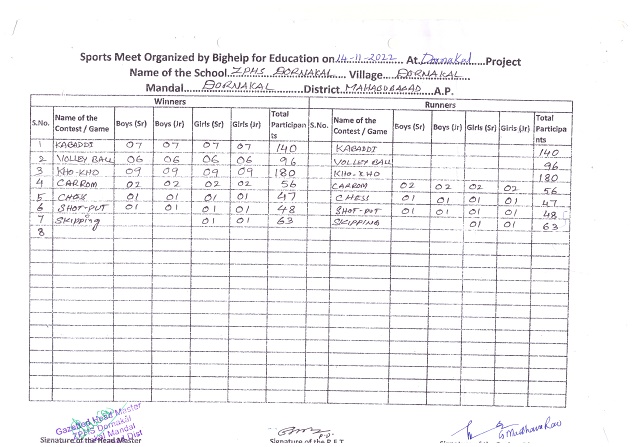 Sports Meet Organized by Bighelp for Education on 14-11-2022 At Dornakal Project
Name of the School ZPHS DORNAKAL Village DORNAKAL
Mandal DORNAKAL District MAHABUBABAD A.P.
Winners Runners
S.No. Name of the Contest / Game Boys (Sr) Boys (Jr) Girls (Sr) Girls (Jr) Total Participants S.No. Name of the Contest / Game Boys (Sr) Boys (Jr) Girls (Sr) Girls (Jr) Total Participants
1 KABADDI 07 07 07 07 140 KABADDI 140
2 VOLLEY BALL 06 06 06 06 96 VOLLEY BALL 96
3 KHO-KHO 09 09 09 09 180 KHO-KHO 180
4 CARROM 02 02 02 02 56 CARROM 02 02 02 02 56
5 CHESS 01 01 01 01 47 CHESS 01 01 01 01 47
6 SHOT-PUT 01 01 01 01 48 SHOT-PUT 01 01 01 01 48
7 Skipping 01 01 63 SKIPPING 01 01 63
8
Gazetted Head Master
ZPHS Dornakal
Mandal
Dist
Signature of the Head Master Signature of the P.E.T